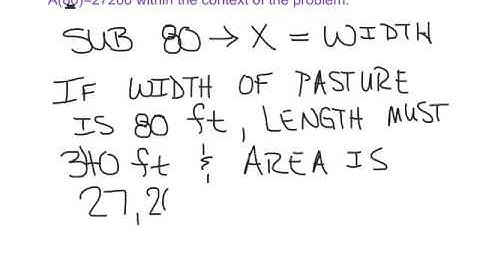 A(80)=27200 within the context of the problem.
SUB 80 → X = WIDTH
IF WIDTH OF PASTURE
IS 80 ft, LENGTH MUST
340 ft & AREA IS
27,20